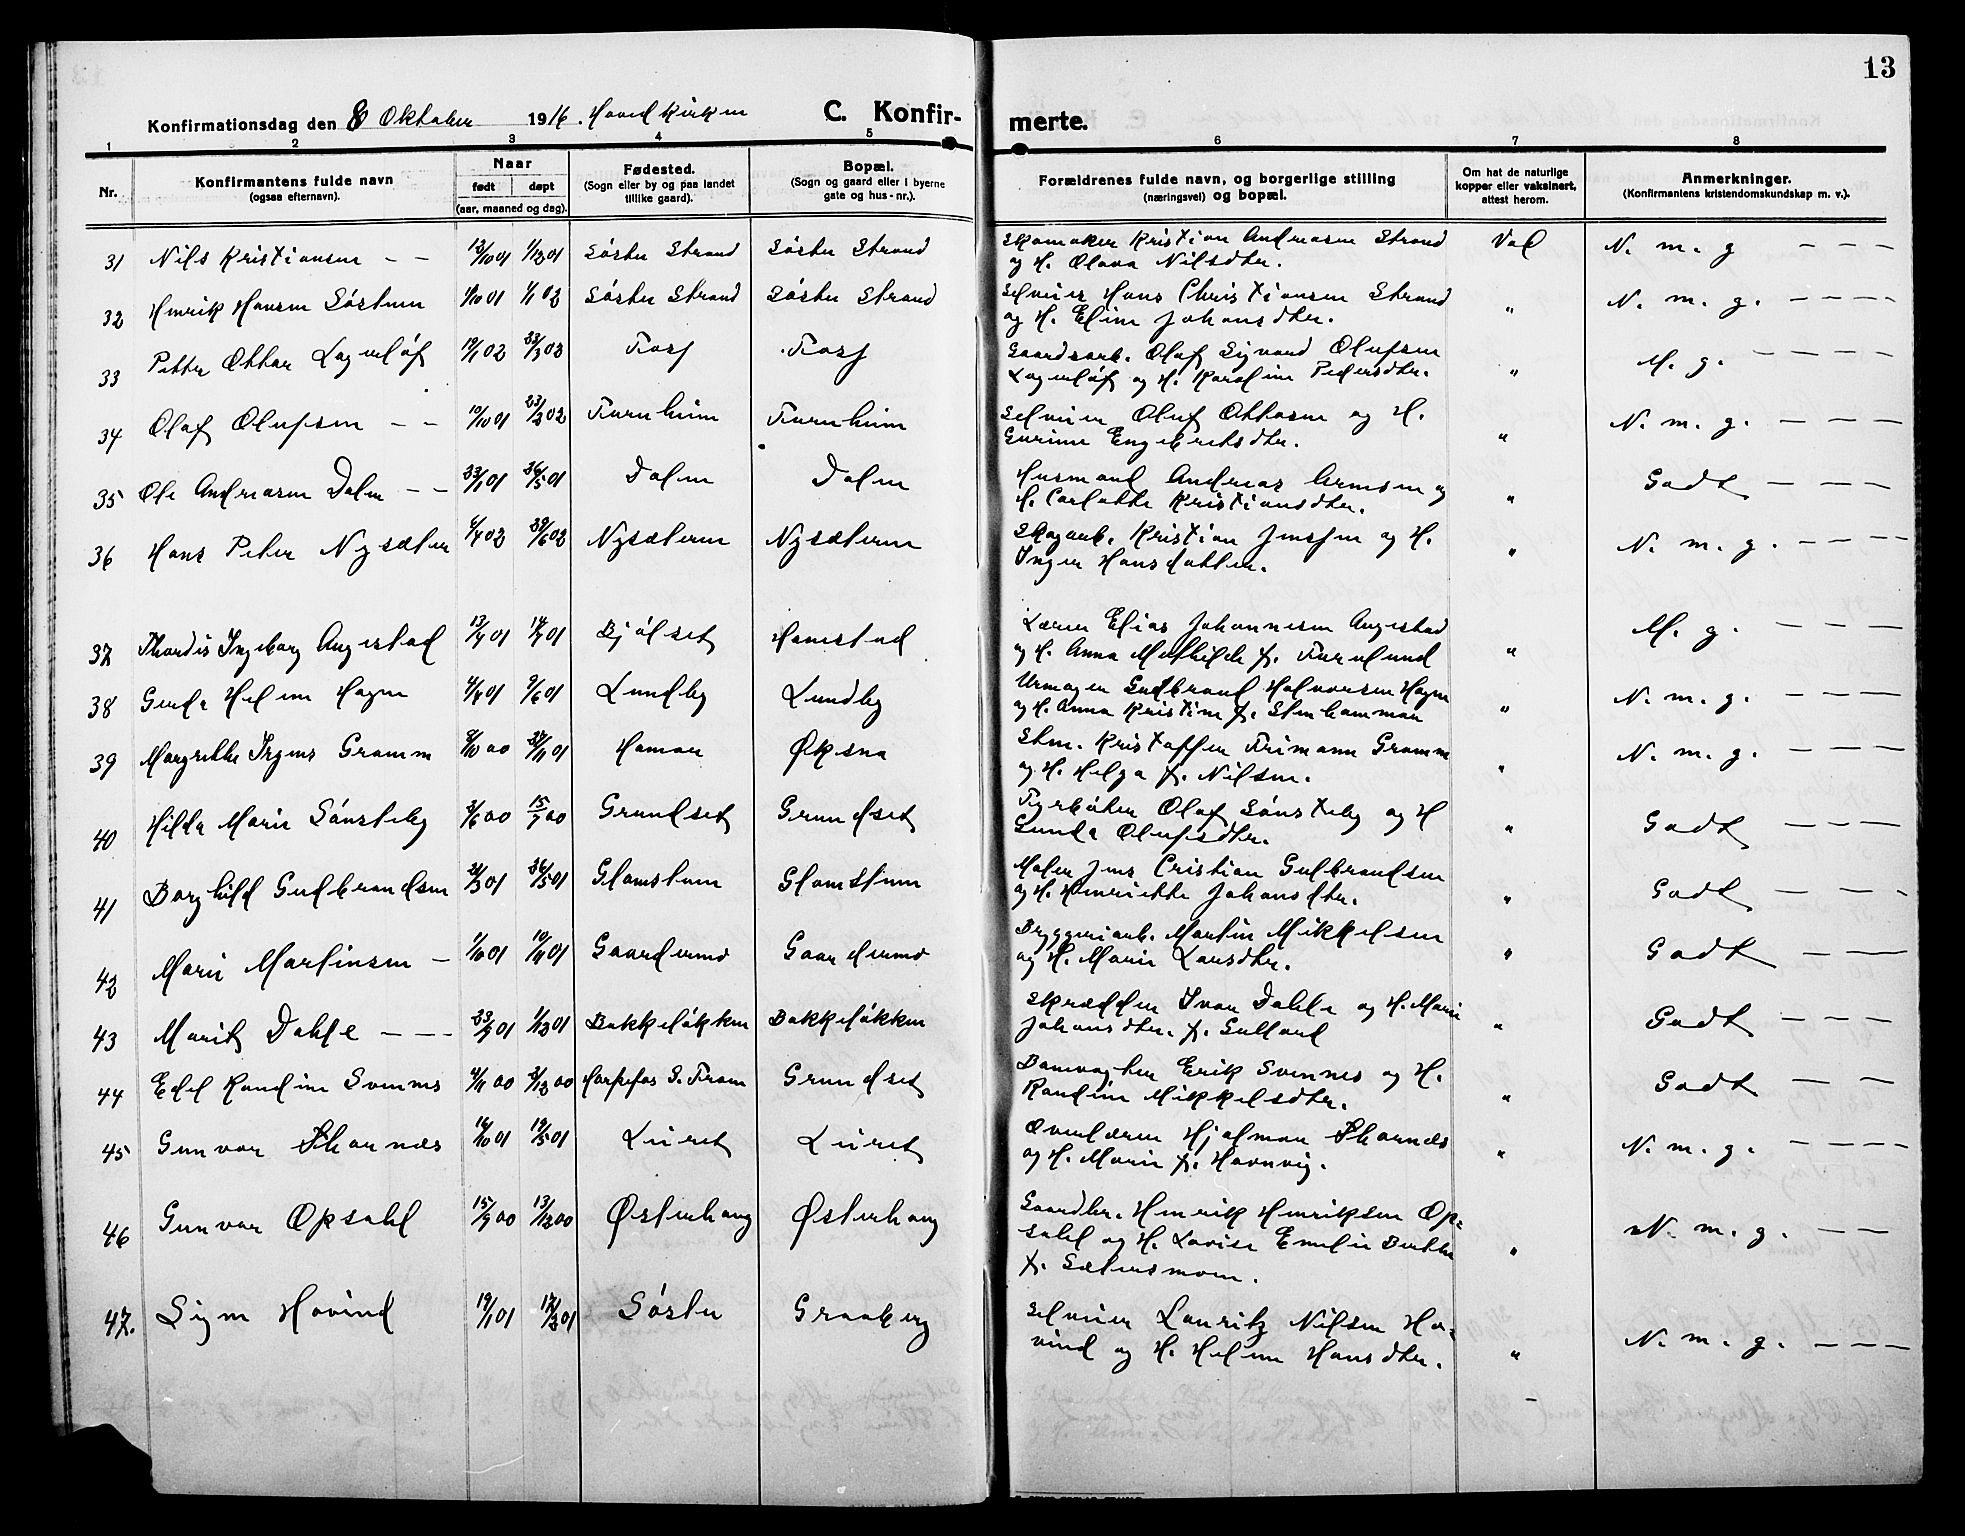 13
Konfirmationsdag den 8 Oktober 1916. Hovedkirken C. Konfir-
merte.
1 2 3 4 5
6 7 8
Nr. Konfirmantens fulde navn (ogsaa efternavn). Naar født døpt (aar, maaned og dag). Fødested. (Sogn eller by og paa landet tillike gaard). Bopæl. (Sogn og gaard eller i byerne gate og hus-nr.).
Forældrenes fulde navn, og borgerlige stilling (næringsvei) og bopæl. Om hat de naturlige kopper eller vaksinert, attest herom. Anmerkninger. (Konfirmantens kristendomskundskap m. v.).
31 Nils Kristiansen – – 12/10 01 1/12 01 Söstu Strand Söstu Strand Skomaker Kristian Andreasen Strand Vac N. m. g – – –
og H. Olava Nilsdtr.
32 Henrik Hansen Söstuen 1/10 01 1/1 02 Söstu Strand Söstu Strand Selveier Hans Christiansen Strand " N. m. g. – – – –
og H. Eline Johansdtr.
33 Petter Ottar Lagerlöf 19/1 02 23/3 02 Torp Torp Gaardsarb. Olaf Sigvard Olufsen " M. g. – – – –
Lagerlöf og H. Karoline Pedersdtr.
34 Olaf Olufsen – – 10/10 01 23/2 02 Furuheim Furuheim Selveier Oluf Ottosen og H. " N. m. g. – – –
Gurine Engebretsdtr.
35 Ole Andreasen Dalen – – 23/1 01 26/5 01 Dalen Dalen Husmand Andreas Arnesen og " Godt – – –
H. Carlotte Kristiansdtr.
36 Hans Peter Nysæter 4/4 02 29/6 02 Nysæteren Nysæteren Skogarb. Kristian Jensen og H. " N. m. g. – – – –
Inger Hansdatter.
37 Thordis Ingeborg Angestad 13/4 01 14/7 01 Bjölset Hamstad Lærer Elias Johannesen Angestad " M. g. – – –
og H. Anna Mathilde f. Furulund
38 Gerda Helene Hagen 4/4 01 9/6 01 Lundby Lundby Urmager Gudbrand Halvorsen Hagen " N. m. g. – – –
og H. Anna Kristine f. Stenhammer
39 Margrethe Irgens Gramm 8/10 00 24/11 01 Hamar Øksna Stm. Kristoffer Frimann Gramm " N. m. g. – – –
og H. Helga f. Nilsen.
40 Hilda Marie Sönsteby 2/6 00 15/7 00 Grundset Grundset Fyrböter Olaf Sönsteby og H " Godt – – –
Gunda Olufsdtr.
41 Borghild Gudbrandsen 2/3 01 26/5 01 Glomstuen Glomstuen Maler Jens Cristian Gulbrandsen " Godt – – –
og H. Henriette Johansdtr.
42 Marie Martinsen – 1/10 01 10/11 01 Gaardermo Gaardermo Bryggeriarb. Martin Mikkelsen " Godt – – –
og H. Marie Larsdtr.
43 Marit Dahle – – – 23/9 01 1/12 01 Bakkeløkken Bakkeløkken Skrædder Ivar Dahle og H. Marie " Godt – – –
Johansdtr. f. Gulland
44 Edel Randine Svennes 4/11 00 2/12 00 Harpefos S. Fron Grundset Banevogter Erik Svennes og H. " Godt – –
Randine Mikkelsdtr.
45 Gunvor Thornæs 16/10 01 19/5 01 Leiret Leiret Overlærer Hjalmar Thornæs " N. m. g. – – – –
og H. Marie f. Havnvig.
46 Gunvor Opsahl 15/9 00 13/12 00 Østerhaug Østerhaug Gaardbr. Henrik Henriksen Op= " N. m. g. – –
sahl og H. Lovise Emelie Berthe
f. Sætersmoen.
47. Signe Hovind 19/1 01 17/3 01 Söstu Graaberg Selveier Lauritz Nilsen Ho= " N. m. g. – – –
vind og H. Helene Hansdtr.